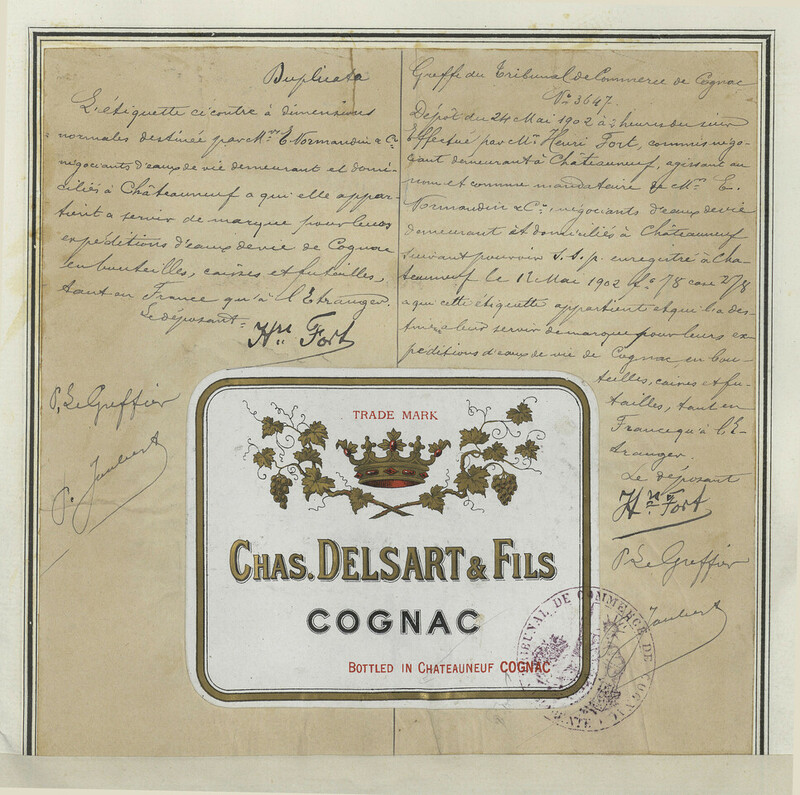 Duplicata
L'étiquette ci contre à dimensions
normales destinée par Mrs E. Normandin & Cie
négociants d'eaux de vie demeurant et domi-
ciliés à Châteauneuf a qui elle appar-
tient a servir de marque pour leurs
expéditions d'eaux de vie de Cognac
en bouteilles, caisses et futailles,
tant en France qu'à l'Etranger.
Le déposant
Hri Fort
P. Le Greffier
P. Joubert
Greffe du Tribunal de Commerce de Cognac
No 3647.
Dépôt du 24 Mai 1902 à 2 heures du soir
Effectué par Mr Henri Fort, commis négo-
ciant demeurant à Châteauneuf, agissant au
nom et comme mandataire de Mrs E.
Normandin & Cie, négociants d'eaux de vie
demeurant et domiciliés à Châteauneuf
suivant pouvoir s.s.p. enregistré à Cha-
teauneuf le 17 Mai 1902 fo 78 case 278
a qui cette étiquette appartient et qui l'a des-
tinée a leur servir de marque pour leurs ex-
péditions d'eaux de vie de Cognac en bou-
teilles, caisses et fu-
tailles, tant en
France qu'à l'E-
tranger.
Le déposant
Hri Fort
P. Le Greffier
Joubert
TRADE MARK
CHAS. DELSART & FILS
COGNAC
BOTTLED IN CHATEAUNEUF COGNAC
TRIBUNAL DE COMMERCE DE COGNAC